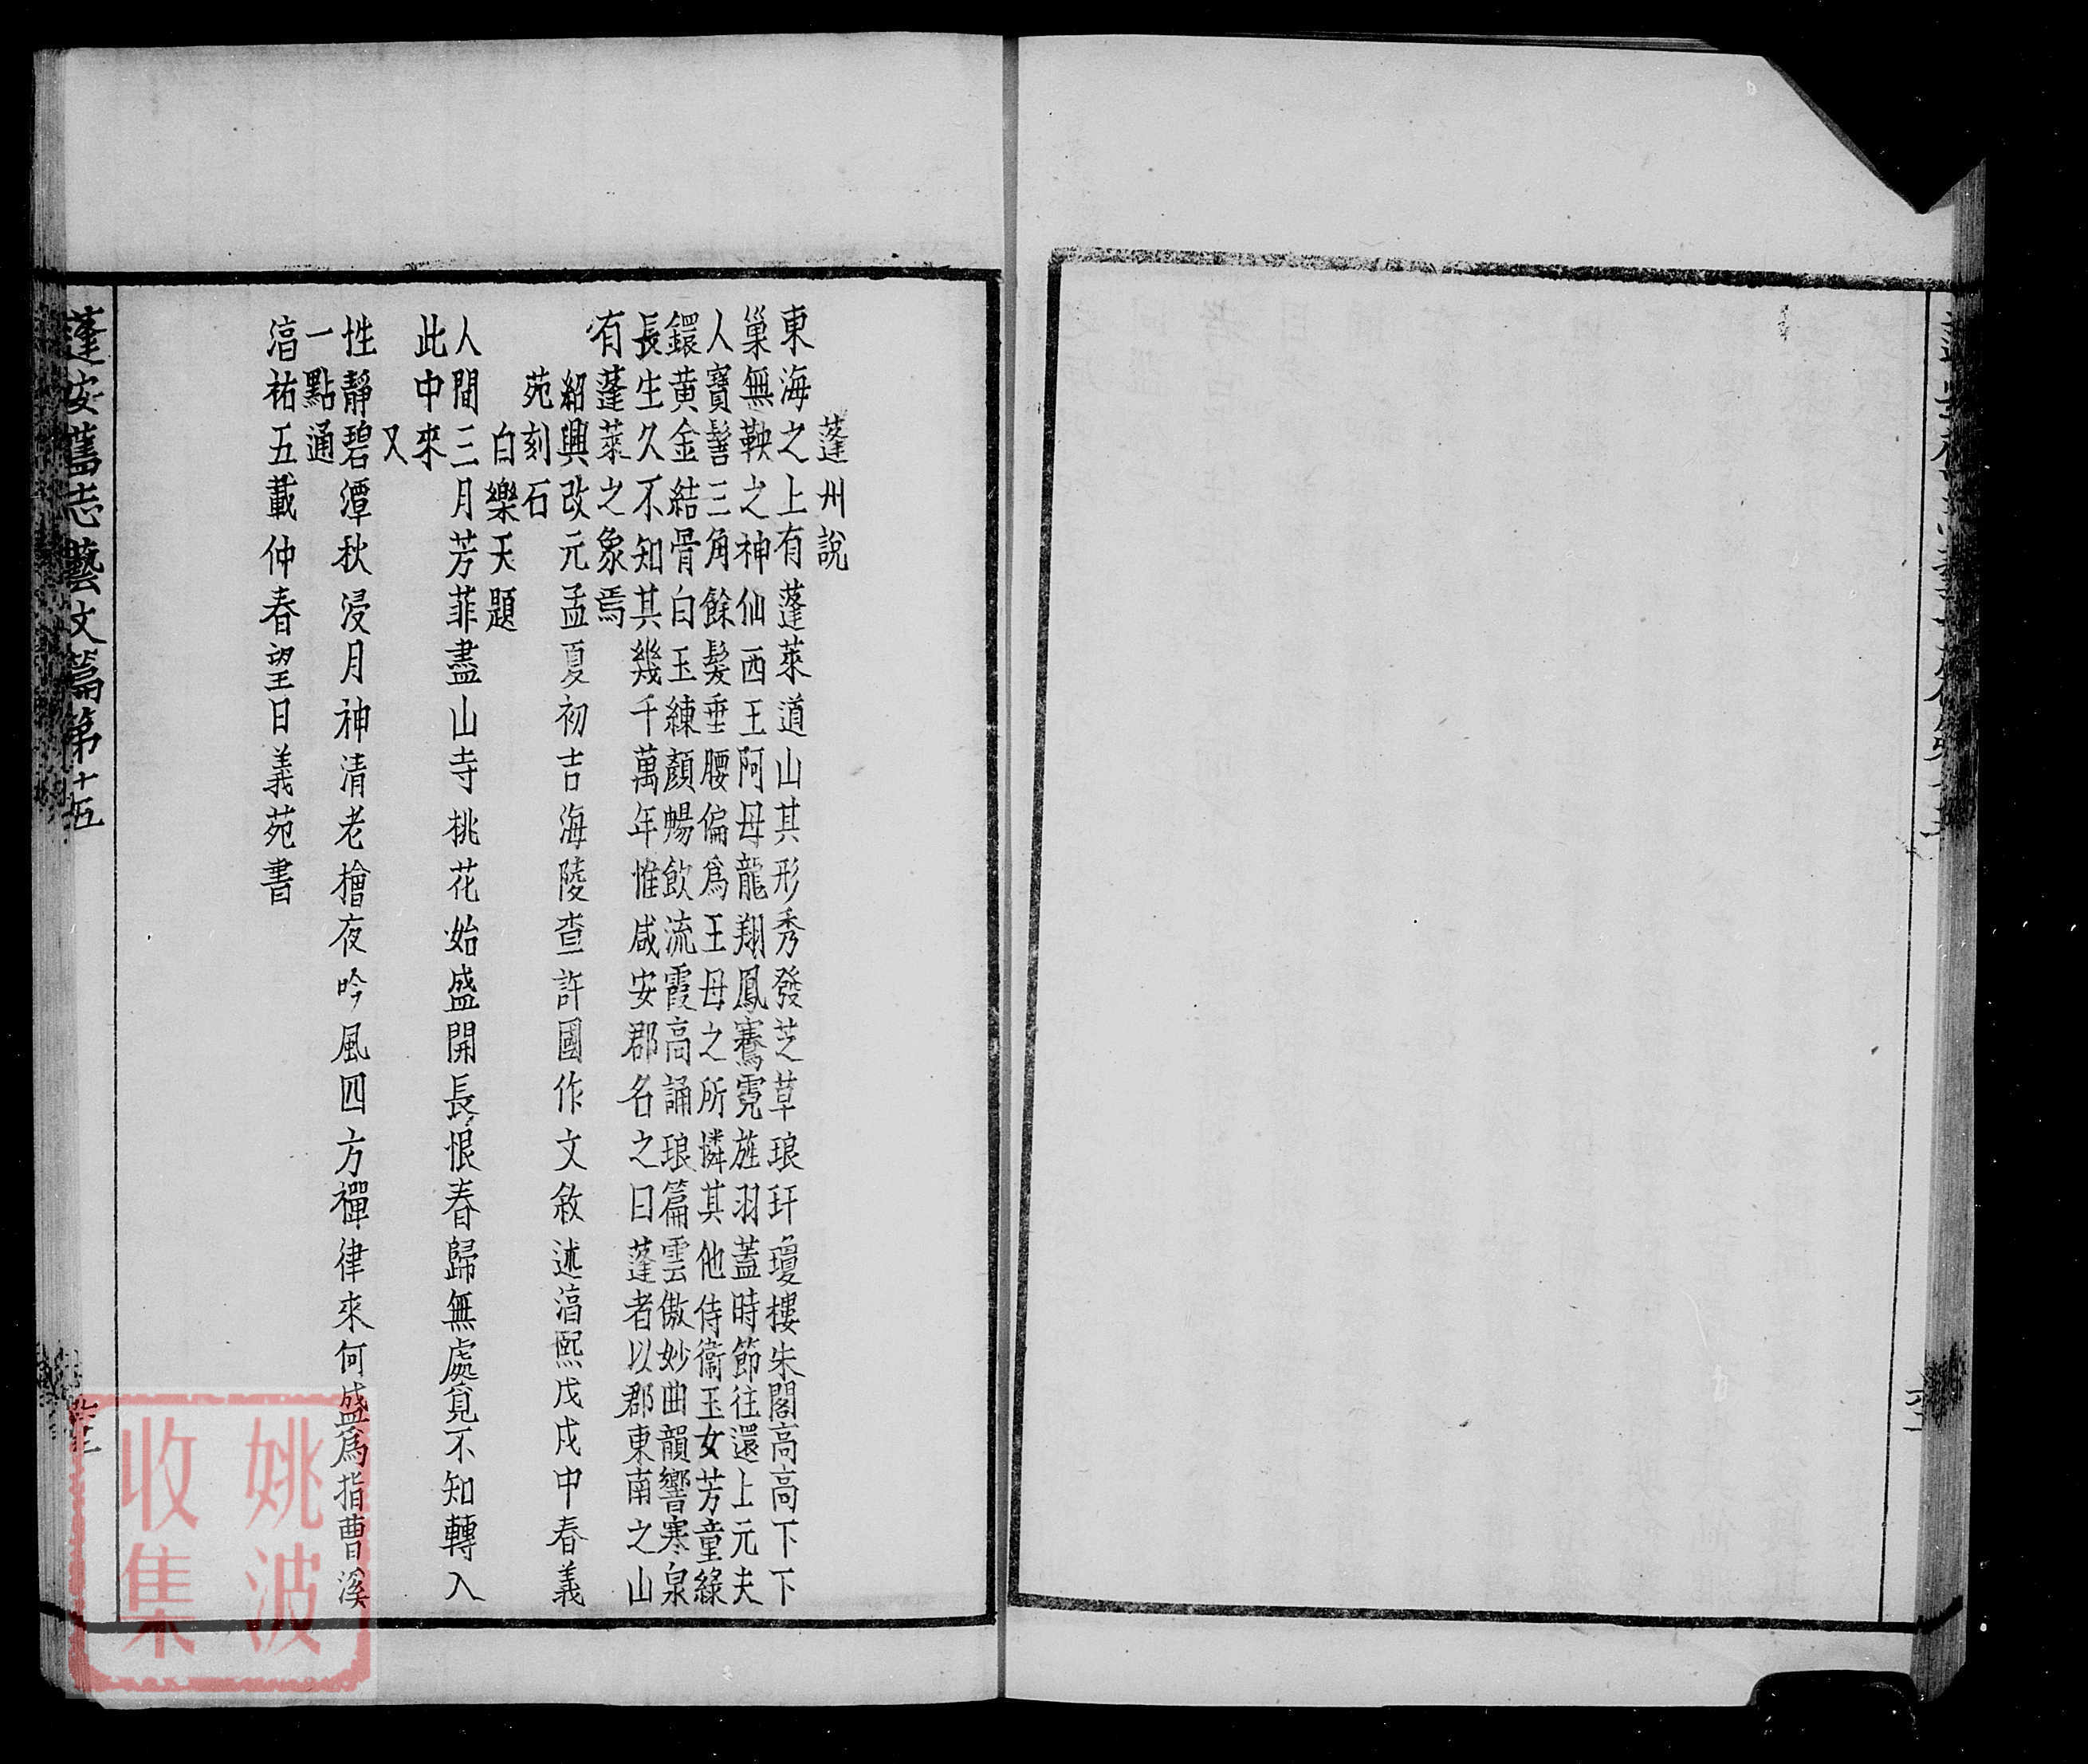 蓬州說
東海之上有蓬萊道山其形秀發芝草琅玕瓊樓朱閣高高下下
巢無鞅之神仙西王阿母龍翔鳳騫霓旌羽蓋時節往還上元夫
人寶髻三角餘髮垂腰偏爲王母之所憐其他侍衞玉女芳童綠
鐶黄金結骨白玉練顏暢飲流霞高誦琅篇雲傲妙曲韻響寒泉
長生久不知其幾千萬年惟咸安郡名之曰蓬者以郡東南之山
有蓬萊之象焉
紹興改元孟夏初吉海陵查許國作文敘述淳熙戊戌中春義
苑刻石
白樂天題
人間三月芳菲盡山寺桃花始盛開長恨春歸無處覓不知轉入
此中來
又
性靜碧潭秋浸月神清老檜夜吟風四方禪律來何盛爲指曹溪
一點通
淳祐五載仲春望日義苑書
蓬安舊志藝文篇第十五
姚波
收集